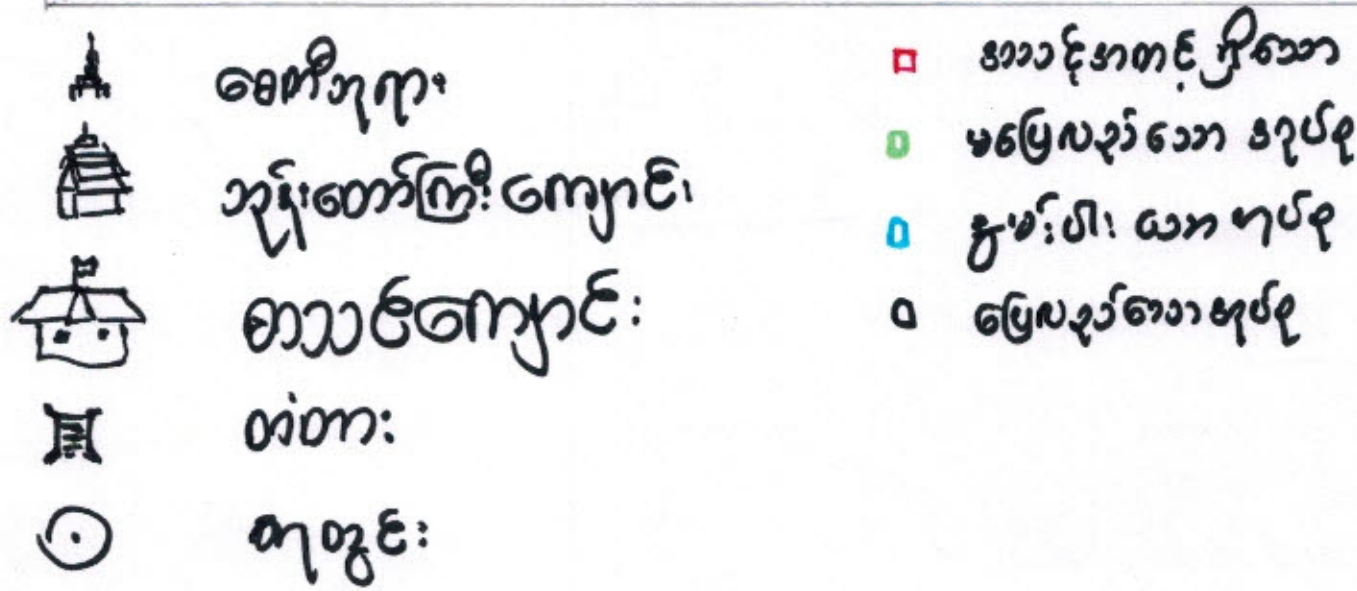 စေတီဘုရား
ဘုန်းတော်ကြီးကျောင်း
စာသင်ကျောင်း
တံတား
ရေတွင်း
အသင့်အတင့်ရှိသော
မပြေလည်သော အုပ်စု
နွမ်းပါး သော အုပ်စု
ပြေလည်သောအုပ်စု